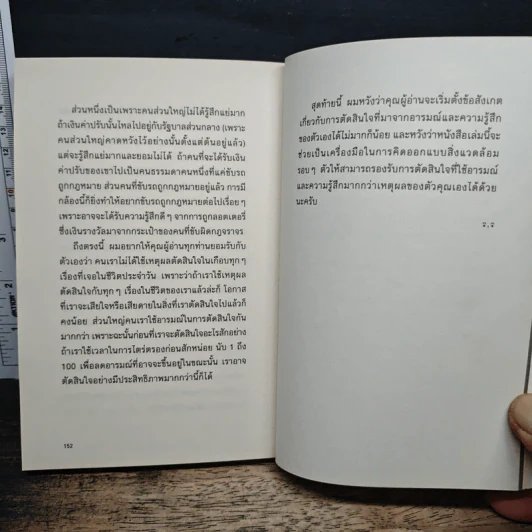 ส่วนหนึ่งเป็นเพราะคนส่วนใหญ่ไม่ได้รู้สึกแย่มาก
ถ้าเงินค่าปรับนั้นไหลไปอยู่กับรัฐบาลส่วนกลาง (เพราะ
คนส่วนใหญ่คาดหวังไว้อย่างนั้นตั้งแต่ต้นอยู่แล้ว)
แต่จะรู้สึกแย่มากและยอมไม่ได้ ถ้าคนที่จะได้รับเงิน
ค่าปรับของเขาไปเป็นคนธรรมดาคนหนึ่งที่แค่ขับรถ
ถูกกฎหมาย ส่วนคนที่ขับรถถูกกฎหมายอยู่แล้ว การมี
กล้องนี้ก็ยิ่งทำให้อยากขับรถถูกกฎหมายต่อไปเรื่อย ๆ
เพราะอาจจะได้รับความรู้สึกดี ๆ จากการถูกลอตเตอรี่
ซึ่งเงินรางวัลมาจากกระเป๋าของคนที่ขับผิดกฎจราจร
ถึงตรงนี้ ผมอยากให้คุณผู้อ่านทุกท่านยอมรับกับ
ตัวเองว่า คนเราไม่ได้ใช้เหตุผลตัดสินใจในเกือบทุก ๆ
เรื่องที่เจอในชีวิตประจำวัน เพราะว่าถ้าเราใช้เหตุผล
ตัดสินใจกับทุก ๆ เรื่องในชีวิตของเราแล้วล่ะก็ โอกาส
ที่เราจะเสียใจหรือเสียดายในสิ่งที่เราตัดสินใจไปแล้วก็
คงน้อย ส่วนใหญ่คนเราใช้อารมณ์ในการตัดสินใจกัน
มากกว่า เพราะฉะนั้นก่อนที่เราจะตัดสินใจอะไรสักอย่าง
ถ้าเราใช้เวลาในการไตร่ตรองก่อนสักหน่อย นับ 1 ถึง
100 เพื่อลดอารมณ์ที่อาจจะขึ้นอยู่ในขณะนั้น เราอาจ
ตัดสินใจอย่างมีประสิทธิภาพมากกว่านี้ก็ได้
152
สุดท้ายนี้ ผมหวังว่าคุณผู้อ่านจะเริ่มตั้งข้อสังเกต
เกี่ยวกับการตัดสินใจที่มาจากอารมณ์และความรู้สึก
ของตัวเองได้ไม่มากก็น้อย และหวังว่าหนังสือเล่มนี้จะ
ช่วยเป็นเครื่องมือในการคิดออกแบบสิ่งแวดล้อม
รอบ ๆ ตัวให้สามารถรองรับการตัดสินใจที่ใช้อารมณ์
และความรู้สึกมากกว่าเหตุผลของตัวคุณเองได้ด้วย
นะครับ